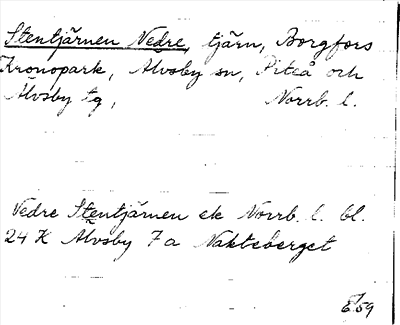 Stentjärnen Vedre, tjärn, Borgfors
Kronopark, Älvsby sn, Piteå och
Älvsby tg, Norrb. l.
Vedre Stentjärnen ek Norrb. l. bl.
24 K Älvsby 7 a Nakteberget
E59